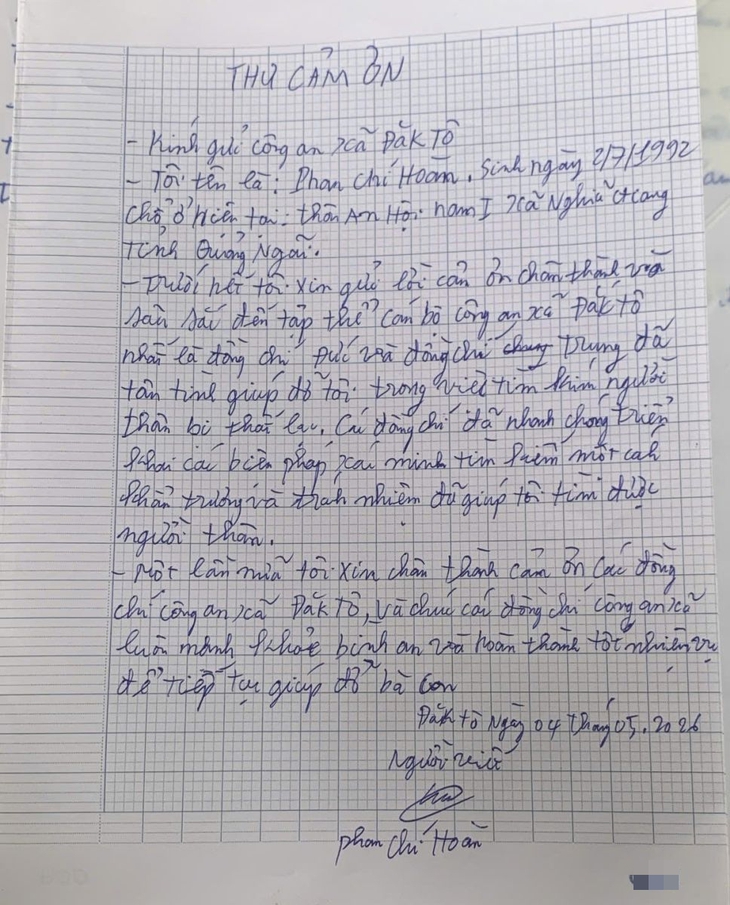 THƯ CẢM ƠN
- Kính gửi công an xã Đăk Tô
- Tôi tên là: Phan Chí Hoàn, Sinh ngày 2/7/1992
Chỗ ở hiện tại: thôn An Hội nam I xã Nghĩa Giang
Tỉnh Quảng Ngãi.
- Trước hết tôi xin gửi lời cảm ơn chân thành và
sâu sắc đến tập thể cán bộ công an xã Đăk Tô
nhất là đồng chí Đức và đồng chí chung Trung đã
tận tình giúp đỡ tôi trong việc tìm kiếm người
thân bị thất lạc. Các đồng chí đã nhanh chóng triển
khai các biện pháp xác minh tìm kiếm một cách
khẩn trương và trách nhiệm đã giúp tôi tìm được
người thân.
- Một lần nữa tôi xin chân thành cảm ơn các đồng
chí công an xã Đăk Tô, và chúc các đồng chí công an xã
luôn mạnh khỏe bình an và hoàn thành tốt nhiệm vụ
để tiếp tục giúp đỡ bà con
Đăk tô Ngày 04 tháng 05. 2026
Người viết
Phan Chí Hoàn